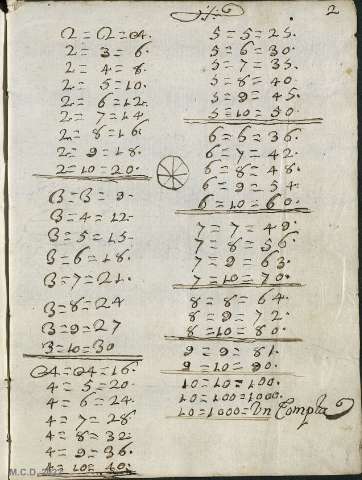 2
2=2=04.
2=3=6.
2=4=8.
2=5=10.
2=6=12.
2=7=14
2=8=16.
2=9=18.
2=10=20.
3=3=9.
3=4=12.
3=5=15.
3=6=18.
3=7=21.
3=8=24
3=9=27
3=10=30
04=04=16.
4=5=20.
4=6=24.
4=7=28
4=8=32.
4=9=36.
4=10=40.
5=5=25.
5=6=30.
5=7=35.
5=8=40.
5=9=45.
5=10=50.
6=6=36.
6=7=42.
6=8=48.
6=9=54.
6=10=60.
7=7=49.
7=8=56.
7=9=63.
7=10=70.
8=8=64.
8=9=72.
8=10=80.
9=9=81.
9=10=90.
10=10=100.
10=100=1000.
10=1000=Un
M.C.D. 2022